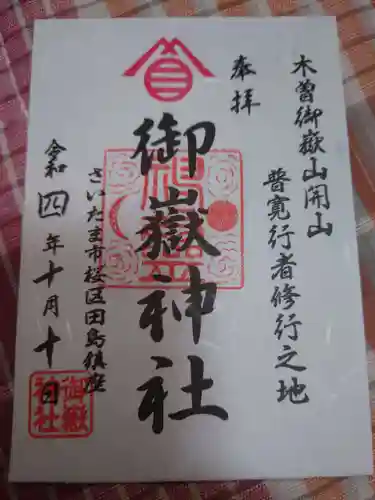 木曽御嶽山開山
普寛行者修行之地
奉拝
御嶽神社
さいたま市桜区田島鎮座
令和四年十月十日
御嶽
神社